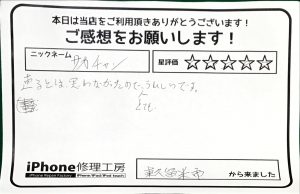 本日は当店をご利用頂きありがとうございます!
ご感想をお願いします!
ニックネーム サカチャン
星評価 ☆☆☆☆☆
直るとは、思わなかったので、うれしいです。
とても
iPhone修理工房
iPhone Repair Factory iPhone/iPad/iPod touch
東久留米市 から来ました